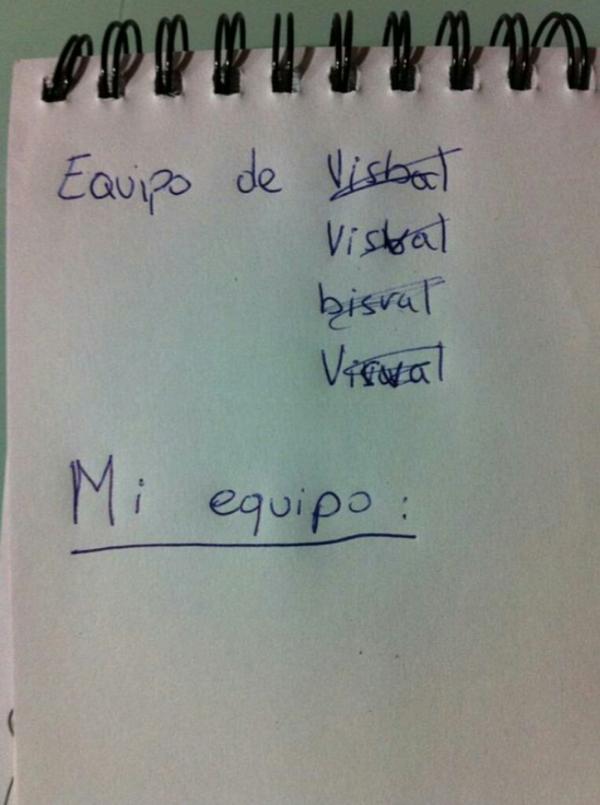 Equipo de Visbal
Visbal
bisval
Visval
Mi equipo: